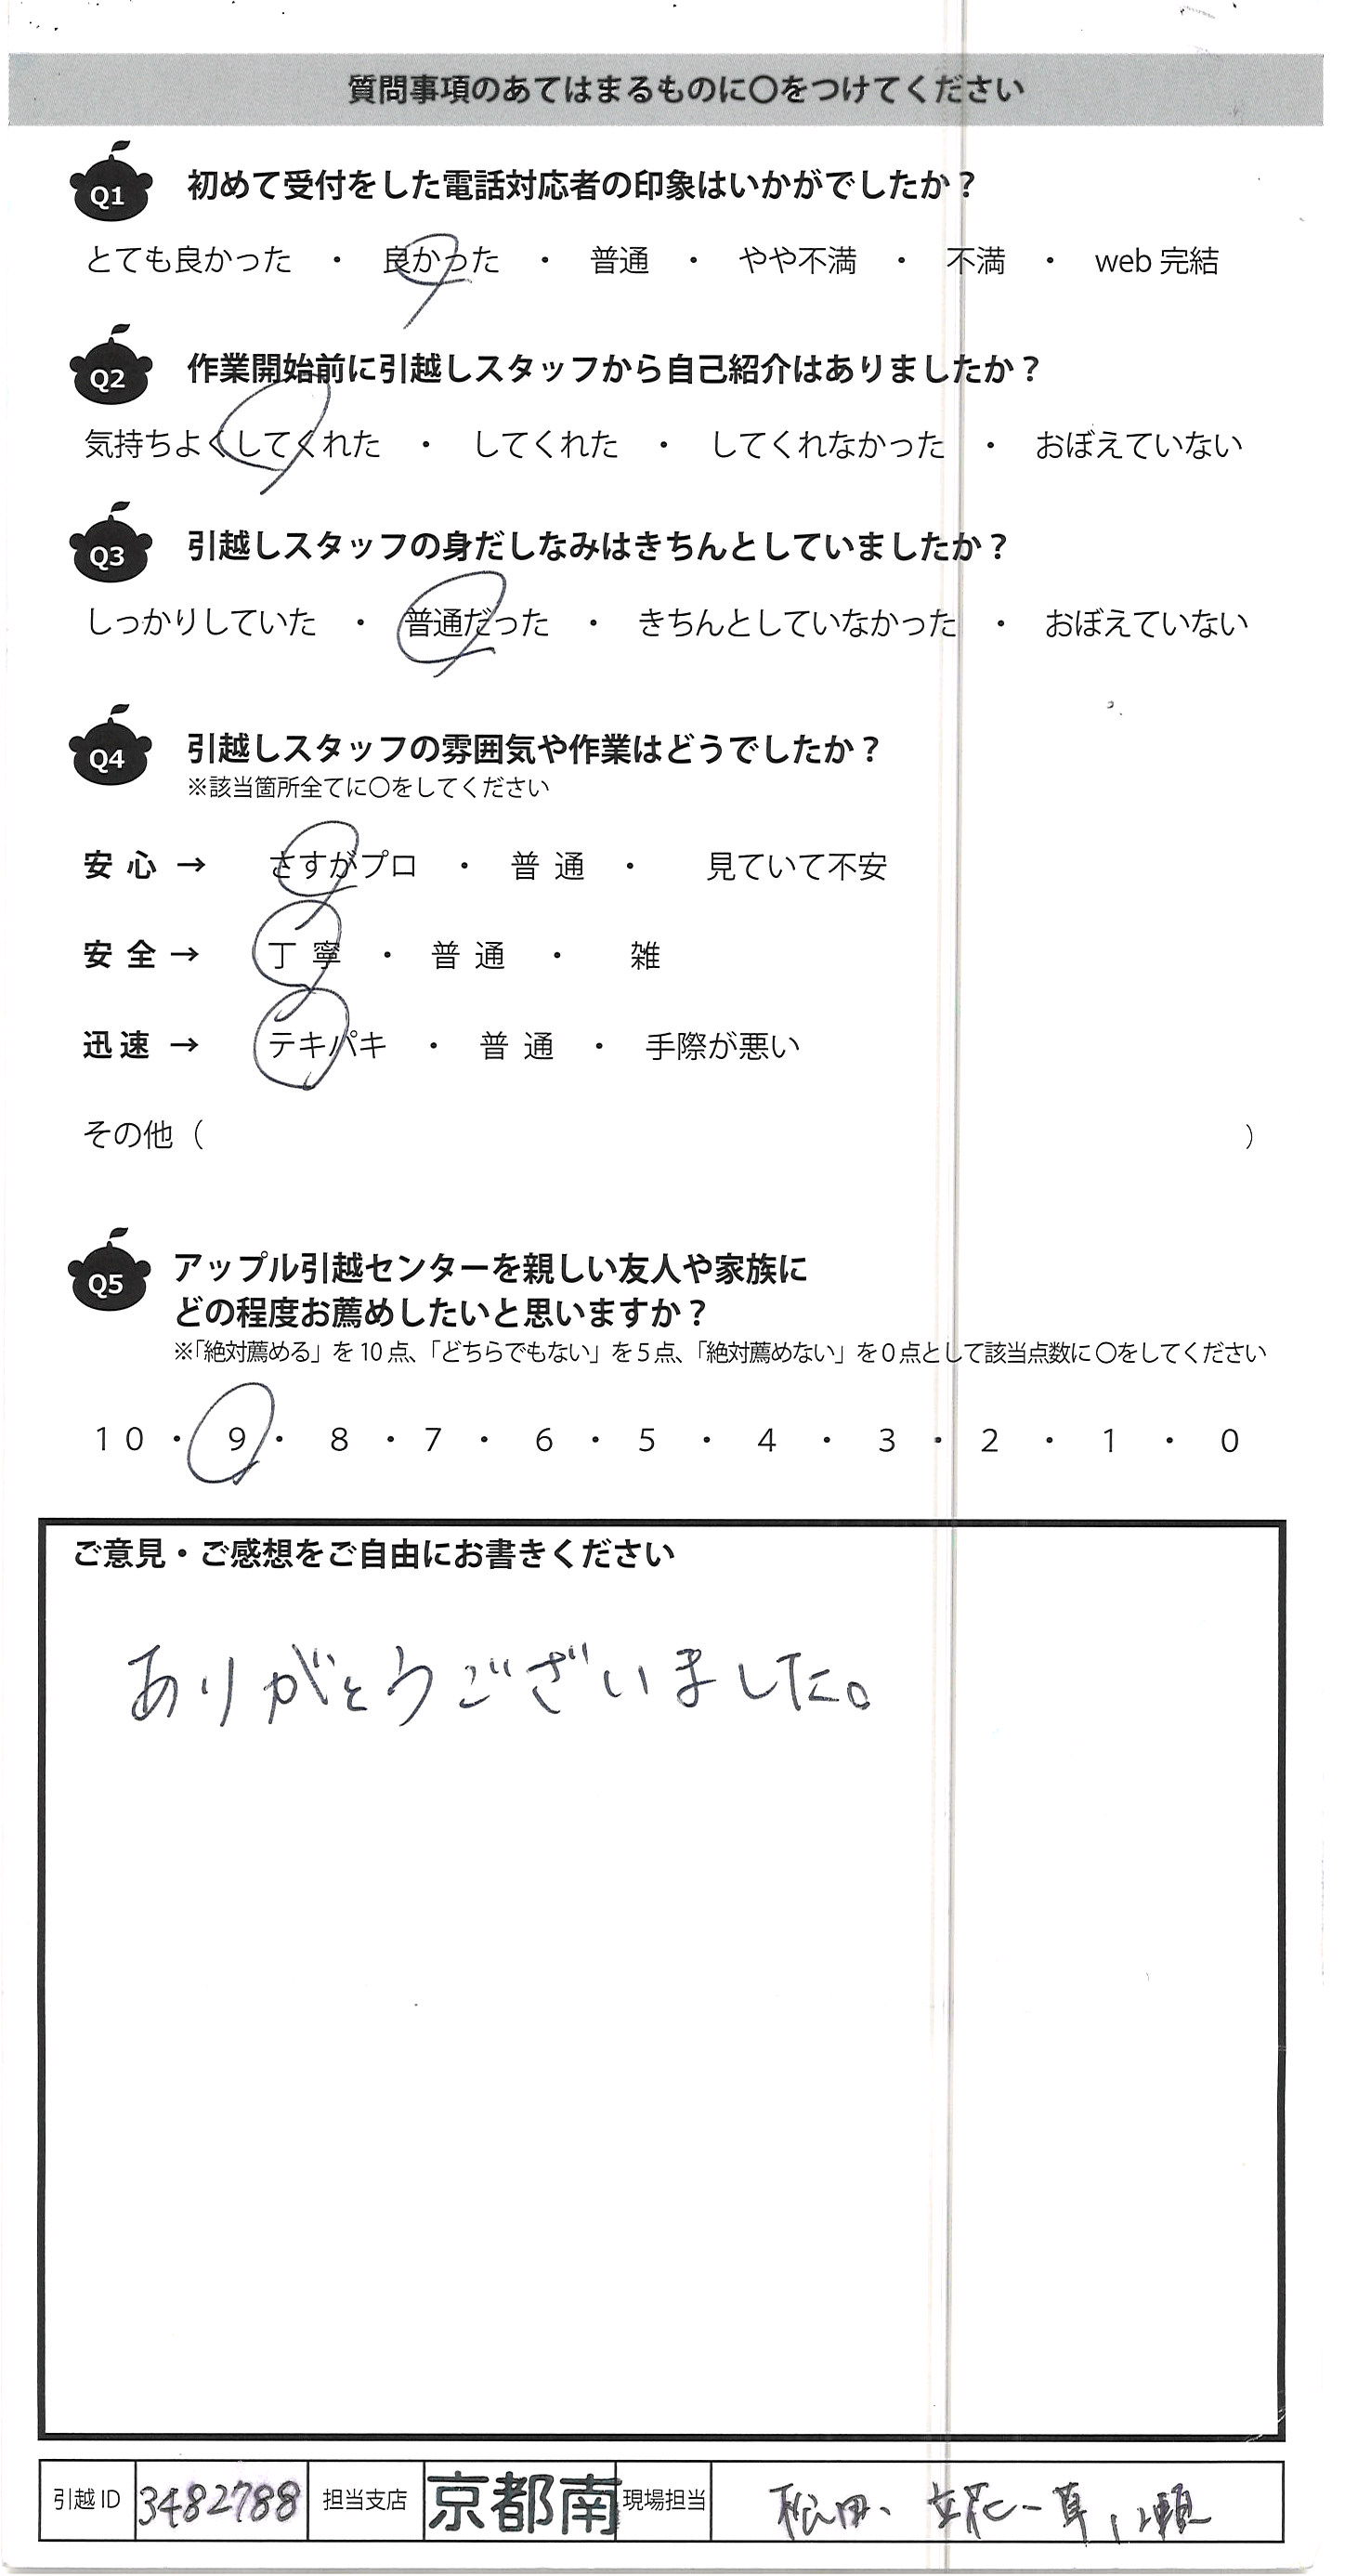 質問事項のあてはまるものに〇をつけてください
Q1 初めて受付をした電話対応者の印象はいかがでしたか？
とても良かった ・ 良かった ・ 普通 ・ やや不満 ・ 不満 ・ web 完結
Q2 作業開始前に引越しスタッフから自己紹介はありましたか？
気持ちよくしてくれた ・ してくれた ・ してくれなかった ・ おぼえていない
Q3 引越しスタッフの身だしなみはきちんとしていましたか？
しっかりしていた ・ 普通だった ・ きちんとしていなかった ・ おぼえていない
Q4 引越しスタッフの雰囲気や作業はどうでしたか？
※該当箇所全てに〇をしてください
安心 → さすがプロ ・ 普通 ・ 見ていて不安
安全 → 丁寧 ・ 普通 ・ 雑
迅速 → テキパキ ・ 普通 ・ 手際が悪い
その他（ ）
Q5 アップル引越センターを親しい友人や家族に
どの程度お薦めしたいと思いますか？
※「絶対薦める」を 10 点、「どちらでもない」を 5 点、「絶対薦めない」を 0 点として該当点数に〇をしてください
10 ・ 9 ・ 8 ・ 7 ・ 6 ・ 5 ・ 4 ・ 3 ・ 2 ・ 1 ・ 0
ご意見・ご感想をご自由にお書きください
ありがとうございました。
引越 ID 3482788 担当支店 京都南 現場担当 松田、立花